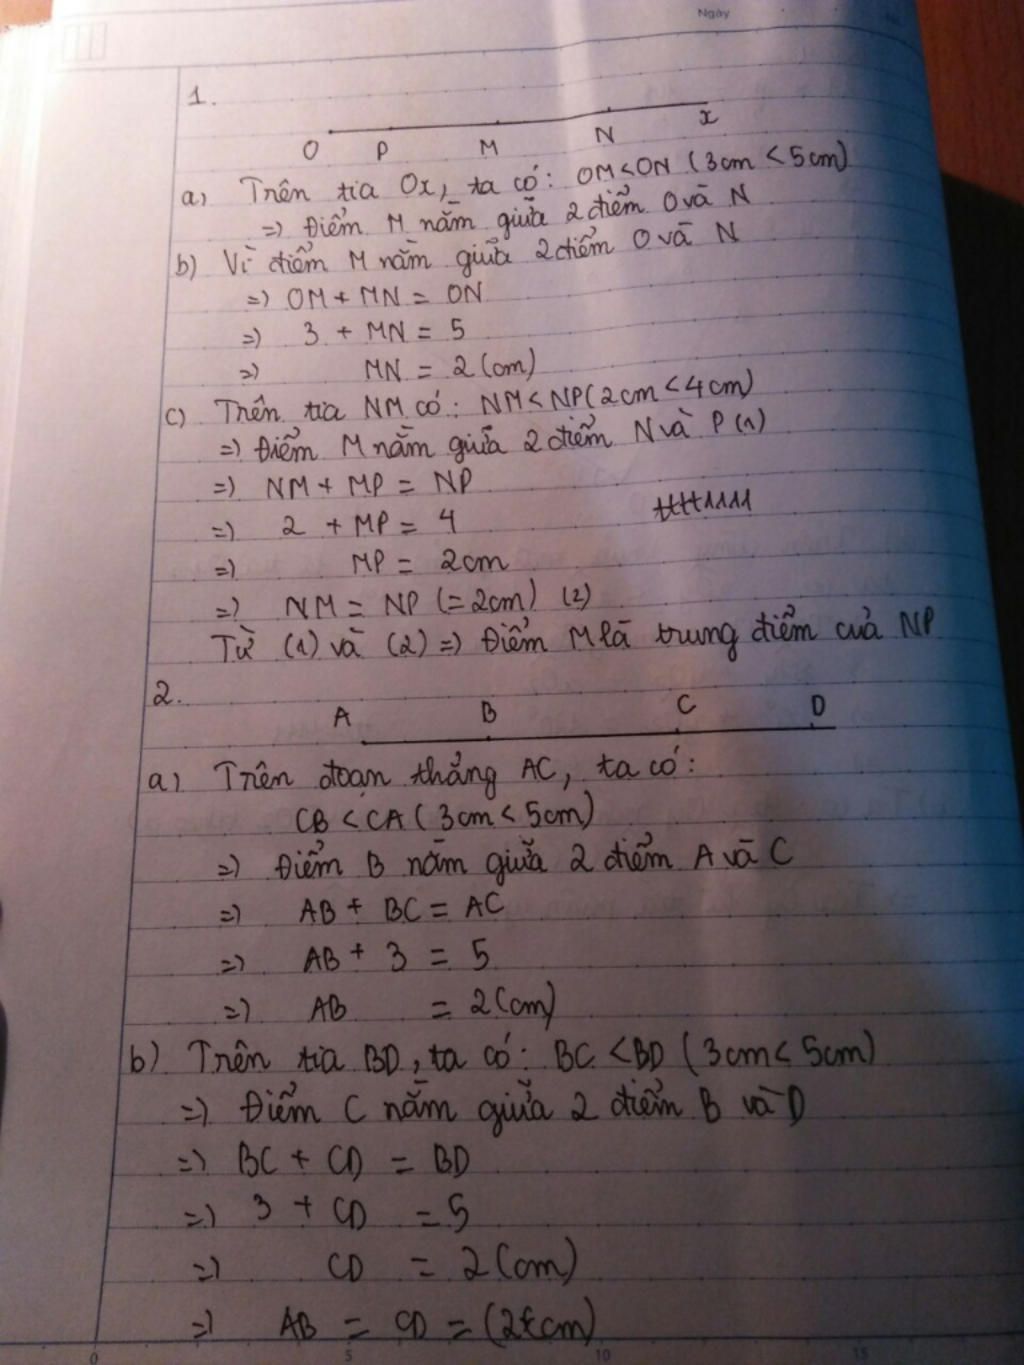 Ngày
1.
O P M N x
a) Trên tia Ox, ta có: OM < ON (3cm < 5cm)
=> Điểm M nằm giữa 2 điểm O và N
b) Vì điểm M nằm giữa 2 điểm O và N
=> OM + MN = ON
=> 3 + MN = 5
=> MN = 2 (cm)
c) Trên tia NM có: NM < NP (2cm < 4cm)
=> Điểm M nằm giữa 2 điểm N và P (1)
=> NM + MP = NP
=> 2 + MP = 4
=> MP = 2cm
=> NM = NP (= 2cm) (2)
Từ (1) và (2) => Điểm M là trung điểm của NP
2.
A B C D
a) Trên đoạn thẳng AC, ta có:
CB < CA (3cm < 5cm)
=> Điểm B nằm giữa 2 điểm A và C
=> AB + BC = AC
=> AB + 3 = 5
=> AB = 2 (cm)
b) Trên tia BD, ta có: BC < BD (3cm < 5cm)
=> Điểm C nằm giữa 2 điểm B và D
=> BC + CD = BD
=> 3 + CD = 5
=> CD = 2 (cm)
=> AB = CD = (2cm)
0 5 10 15